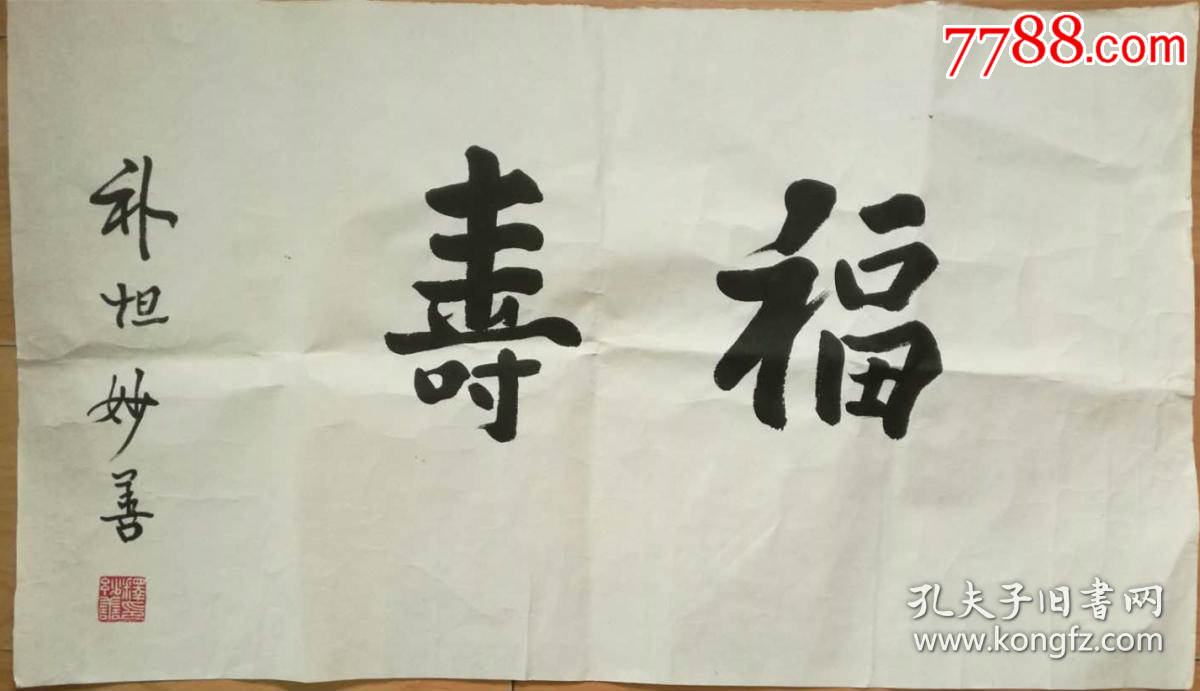 7788.com
福壽
补怛妙善
孔夫子旧書网
www.kongfz.com